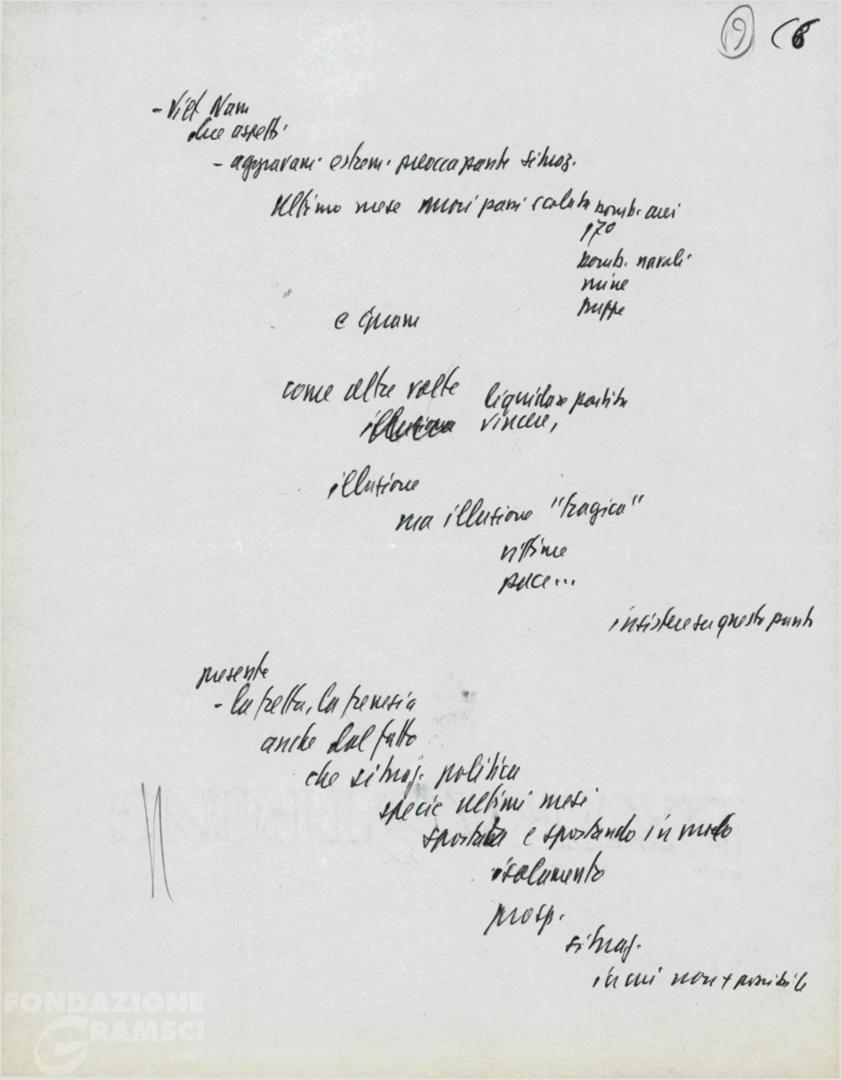 19 6
- Viet Nam
due aspetti
- aggravam. estrem. preoccupante situaz.
Ultimo mese nuovi passi scalata bomb. aerei
170
bomb. navali
mine
truppe
e
come altre volte liquidare partita
illusione vincere,
illusione
ma illusione "tragica"
vittime
pace...
insistere su questo punto
presente
- la fretta, la frenesia
anche dal fatto
che situaz. politica
specie ultimi mesi
spostata e spostando in modo
isolamento
prosp.
situaz.
in cui non + possibile
FONDAZIONE
GRAMSCI
onlus